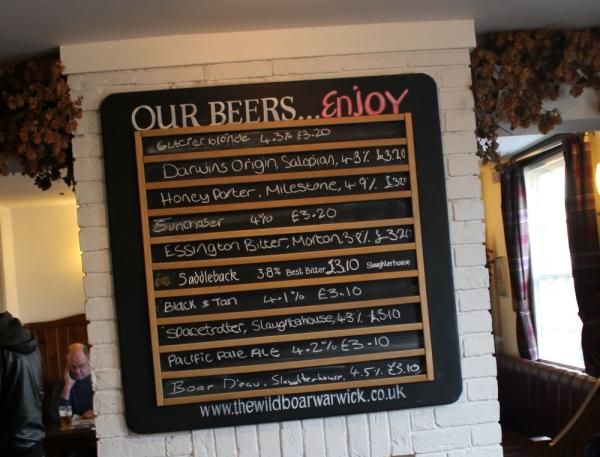 OUR BEERS... Enjoy
Glacier blonde 4.3% £3.20
Darwins Origin, Salopian, 4.3% £3.20
Honey Porter, Milestone, 4.9% £3.20
Sunchaser 4% £3.20
Essington Bitter, Morton, 3.8% £3.20
Saddleback 3.8% Best Bitter £3.10 Slaughterhouse
Black & Tan 4.1% £3.10
Spacetrotter, Slaughterhouse, 4.3% £3.10
Pacific Pale Ale 4.2% £3.10
Boar D'eau, Slaughterhouse, 4.5% £3.10
www.thewildboarwarwick.co.uk